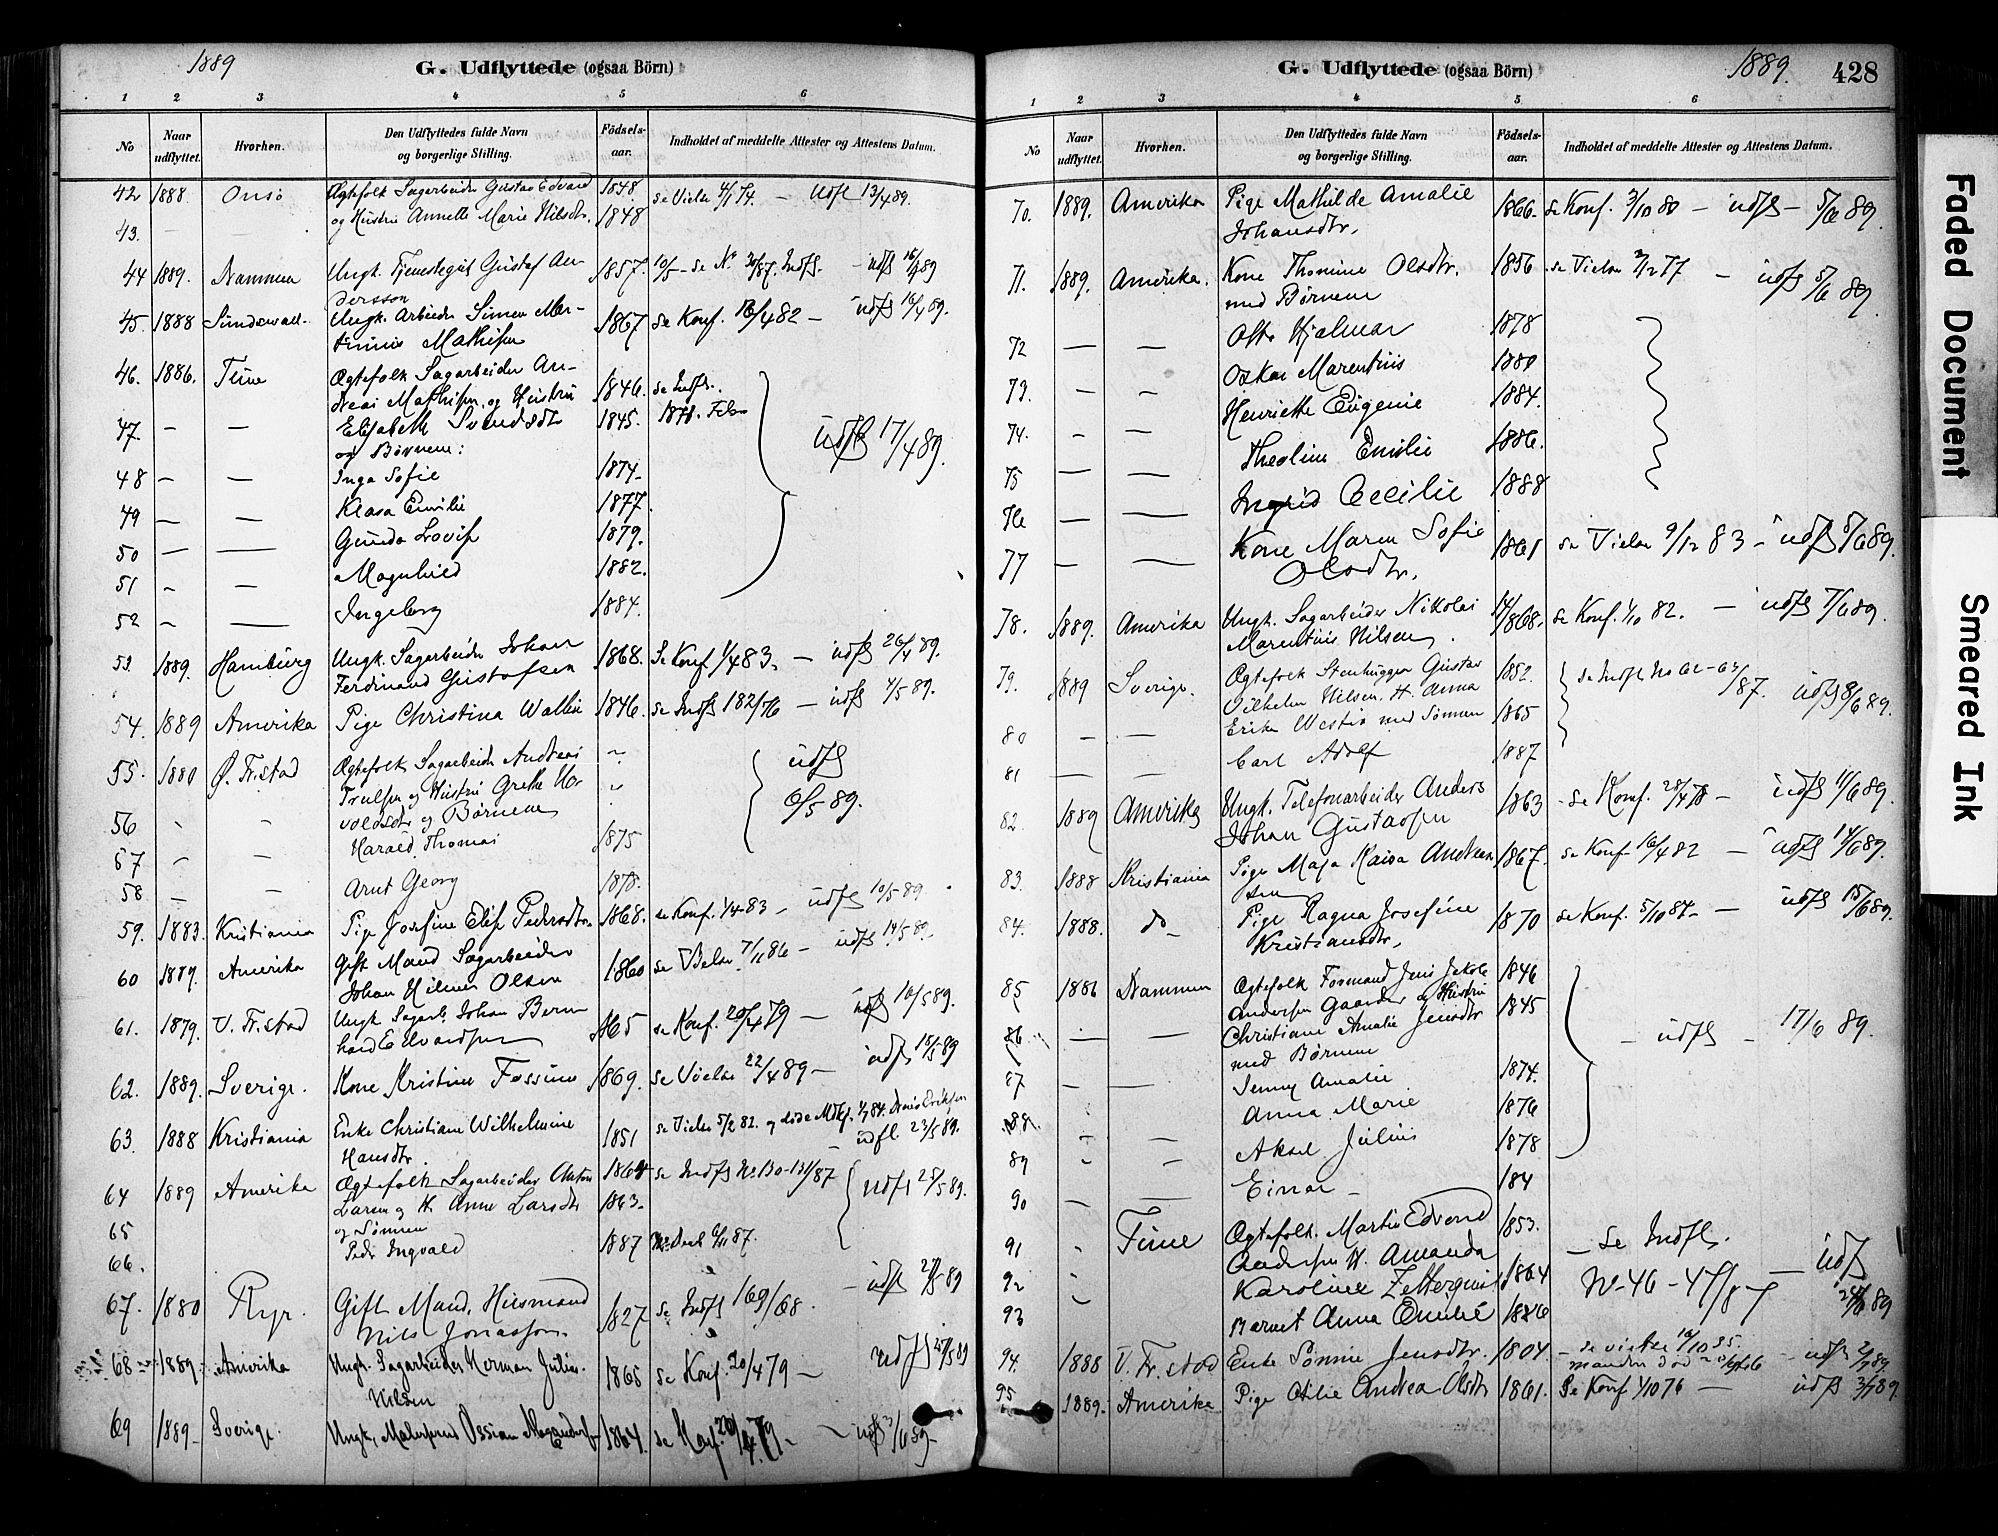 1889
G. Udflyttede (ogsaa Börn)
1 2 3 4 5 6
No
Naar udflyttet.
Hvorhen.
Den Udflyttedes fulde Navn og borgerlige Stilling.
Födsels-aar.
Indholdet af meddelte Attester og Attestens Datum.
42 1888 Onsö Ægtefolk Sagarbeider Gustav Edvard 1848 se Vielse 4/1 74. – Udfl 13/4 89.
43. – – og Hustru Annette Marie Nilsdtr. 1848
44 1889. Drammen Ungk. Tjenestegut Gustaf An- 1857. se No Indfl. – udfl 16/4 89
dersson
45. 1888 Sundswall. Ungk. Arbeider Simen Mar- 1867 se Konf. 16/4 82 – udfl 16/4 89.
tinius Mathisen
46. 1886. Tune Ægtefolk Sagarbeider An- 1846. se Indfl.
dreas Mathisen og Hustru
47. – – Elisabeth Svendsdtr 1845. 1871. Febr udfl 17/4 89.
og Børnene:
48 – – Inga Sofie 1874.
49 – – Klara Emilie 1877.
50 – – Gunda Lovise 1879.
51 – – Magnhild 1882.
52 – – Ingeborg 1884.
53. 1889. Hamburg Ungk. Sagarbeider Johan 1868. Se Konf. 1/4 83. – udfl 26/4 89.
Ferdinand Gustafsen
54. 1889 Amerika Pige Christina Wallin 1846. se Indfl 182/76 – udfl 4/5 89.
55. 1880 Ø. Fr.stad Ægtefolk Sagarbeider Andreas ~ udfl
Trulsen og Hustru Grethe Ha- 6/5 89.
56 – – voldsdtr og Børnene
57 – – Harald Thomas 1875
58 – – Arnt Georg 1878.
59. 1883. Kristiania Pige Josefine Elise Pedersdtr 1868. se Konf. 1/4 83 – udfl 10/5 89.
60 1889. Amerika Gift Mand Sagarbeider 1860 se Vielse 7/11 86 – udfl 14/5 89.
Johan Hilmer Olsen
61. 1879. V. Fr.stad Ungk. Sagarb. Johan Bern 1865 se Konf. 20/4 79 – udfl 16/5 89.
hard Edvardsen
62. 1889. Sverige. Kone Kristine Fossum 1869. se Vielse 22/4 89 – udfl 18/5 89
63. 1888 Kristiania Enke Christiane Wilhelmine 1851 se Vielse 5/2 82. og døde 1/7 84. Eriksen
Hansdtr. udfl. 23/5 89.
64 1889 Amerika Ægtefolk Sagarbeider Anton 1864 se Indfl No 130-131/87 udfl 25/5 89.
65 Larsen og H. Anne Larsdtr 1863.
og Sønnen
66. Peder Ingvald 1887 se Daab 6/11 87.
67. 1880 Rygge Gift Mand, Husmand 1827 se Indfl 169/68. – udfl 27/5 89
Nils Jonassen.
68 1889. Amerika Ungk. Sagarbeider Herman Julius 1865 se Konf. 20/4 79 – udfl 27/5 89
Nilsen
69 1889 – Sverige. Ungk. Malersvend Ossian 1864. se Konf. 20/4 79 – udfl 3/6 89 –
G. Udflyttede (ogsaa Börn)
1889. 428
1 2 3 4 5 6
No
Naar udflyttet.
Hvorhen.
Den Udflyttedes fulde Navn og borgerlige Stilling.
Födsels-aar.
Indholdet af meddelte Attester og Attestens Datum.
70. 1889. Amerika Pige Mathilde Amalie 1866. se Konf. 3/10 80 – udfl – 5/6 89.
Johansdtr.
71. 1889. Amerika. Kone Thomine Olsdtr. 1856 se Vielse 2/12 77 – udfl 5/6 89
med Børnene
72 – – Otto Hjalmar 1878
73. – – Oskar Marentius 1880
74. – – Henriette Eugenie 1884.
75 – – Theoline Emilie 1886.
76 – – Ingrid Cecilie 1888
77 – – Kone Maren Sofie 1861 se Vielse 9/12 83 – udfl 5/6 89.
Olsdtr.
78. 1889. Amerika Ungk. Sagarbeider Nikolai 1868. se Konf. 1/10 82. – udfl 7/6 89.
Marentius Nilsen.
79. 1889 Sverige. Ægtefolk Stenhugger Gustav 1852. se Indfl No 62-63/87. udfl 8/6 89.
Vilhelm Nilsen. H. Anna
80 – – Erika Westin med Sønnen 1865
81 – – Carl Adolf 1887
82. 1889 Amerika Ungk. Telefonarbeider Anders 1863 – se Konf. 28/4 78 – udfl 11/6 89.
Johan Gustavsen
83. 1888 Kristiania Pige Maja Kaisa Andrea 1867. se Konf. 16/4 82 – udfl 14/6 89.
sen
84. 1888. do Pige Ragna Josefine 1870 se Konf. 5/10 84 – udfl 15/6 89.
Kristiansdtr.
85 1886 Drammen Ægtefolk Formand Jens Jakob 1846
Andersen Gaarder og Hustru 1845
86 – – Christiane Amalie Jensdtr – udfl – 17/6 89.
med Børnene
87 – – Jenny Amalie 1874.
88 Anna Marie 1876
89 – – Aksel Julius 1878
90 – – Einar – 184
91 – Tune Ægtefolk. Martin Edvard 1853. – se Indfl.
92 – Andersen H. Amanda
Karoline Zettergren 1864 No 46-47/87 – udfl
93 – Barnet Anna Emilie 1886 24/6 89
94. 1888 V. Fr.stad Enke Sonnie Jensdtr. 1804 – se vielse 16/10 35. – udfl 2/7 89.
manden død
95 1889. Amerika. Pige Otilie Andrea Olsdtr 1861. Se Konf 1/10 76 – udfl 3/7 89.
Faded Document
Smeared Ink